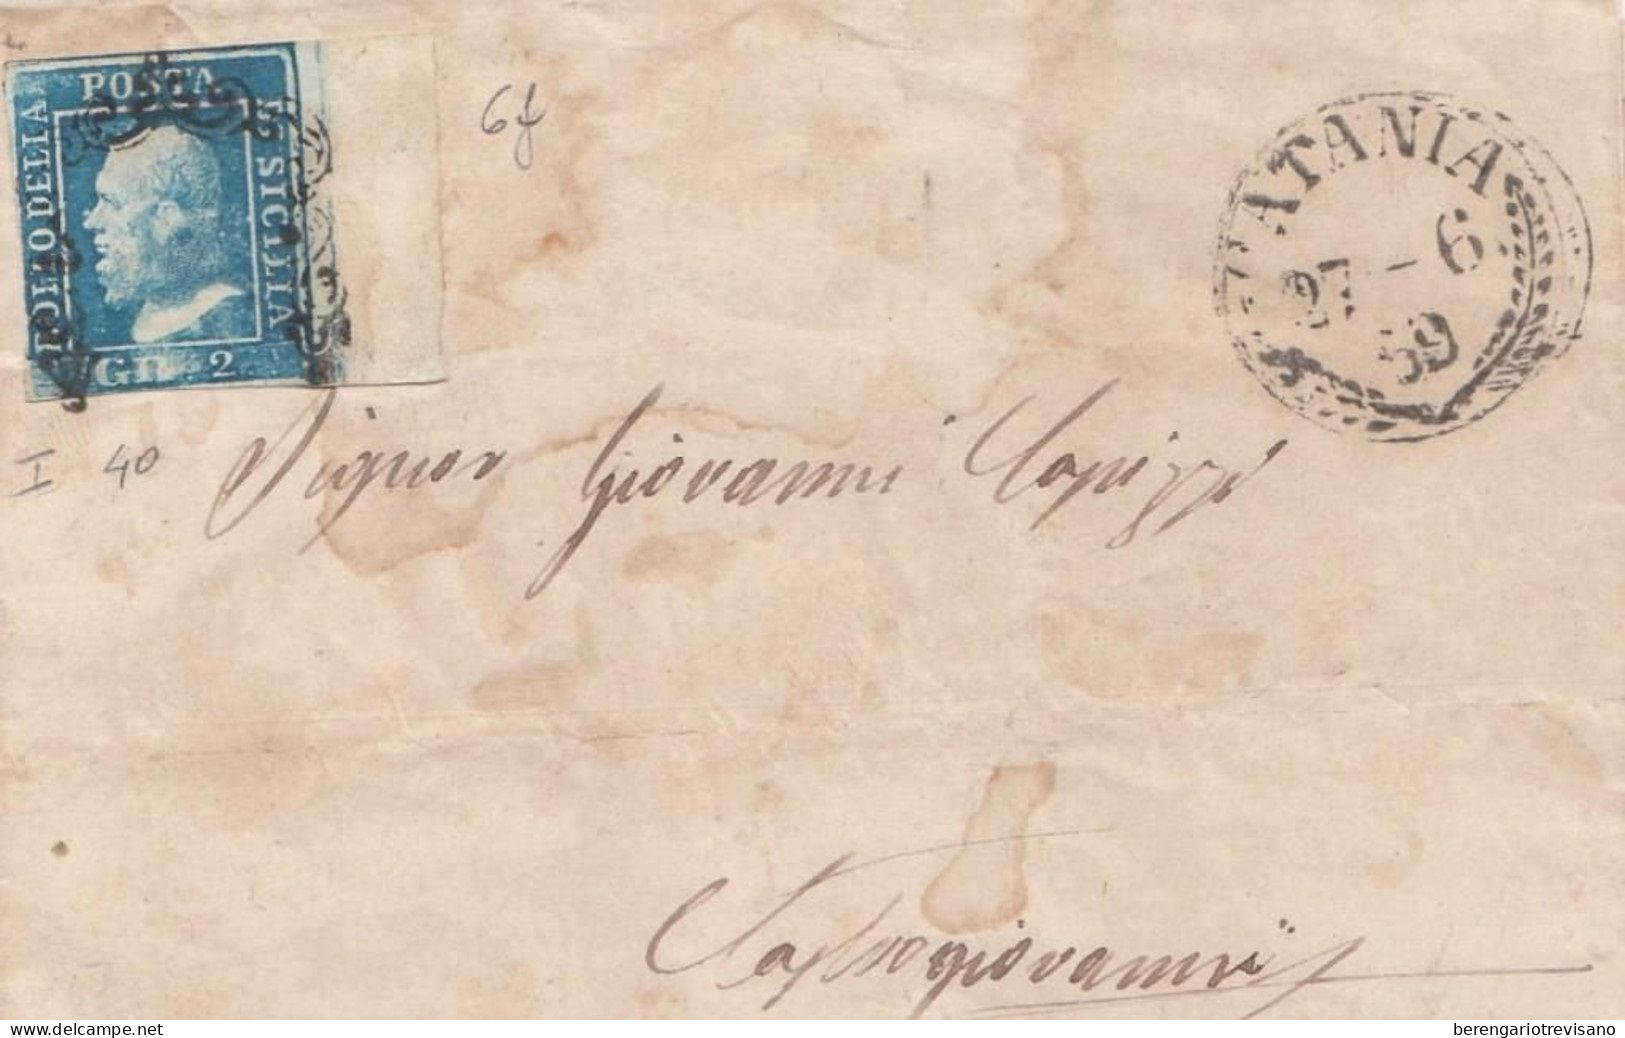 POSTA
BOLLO DELLA
SICILIA
GR. 2.
6f
CATANIA
21 - 6
59
I 40
Signor Giovanni Capizzi
Castrogiovanni
delcampe.net
berengariotrevisano